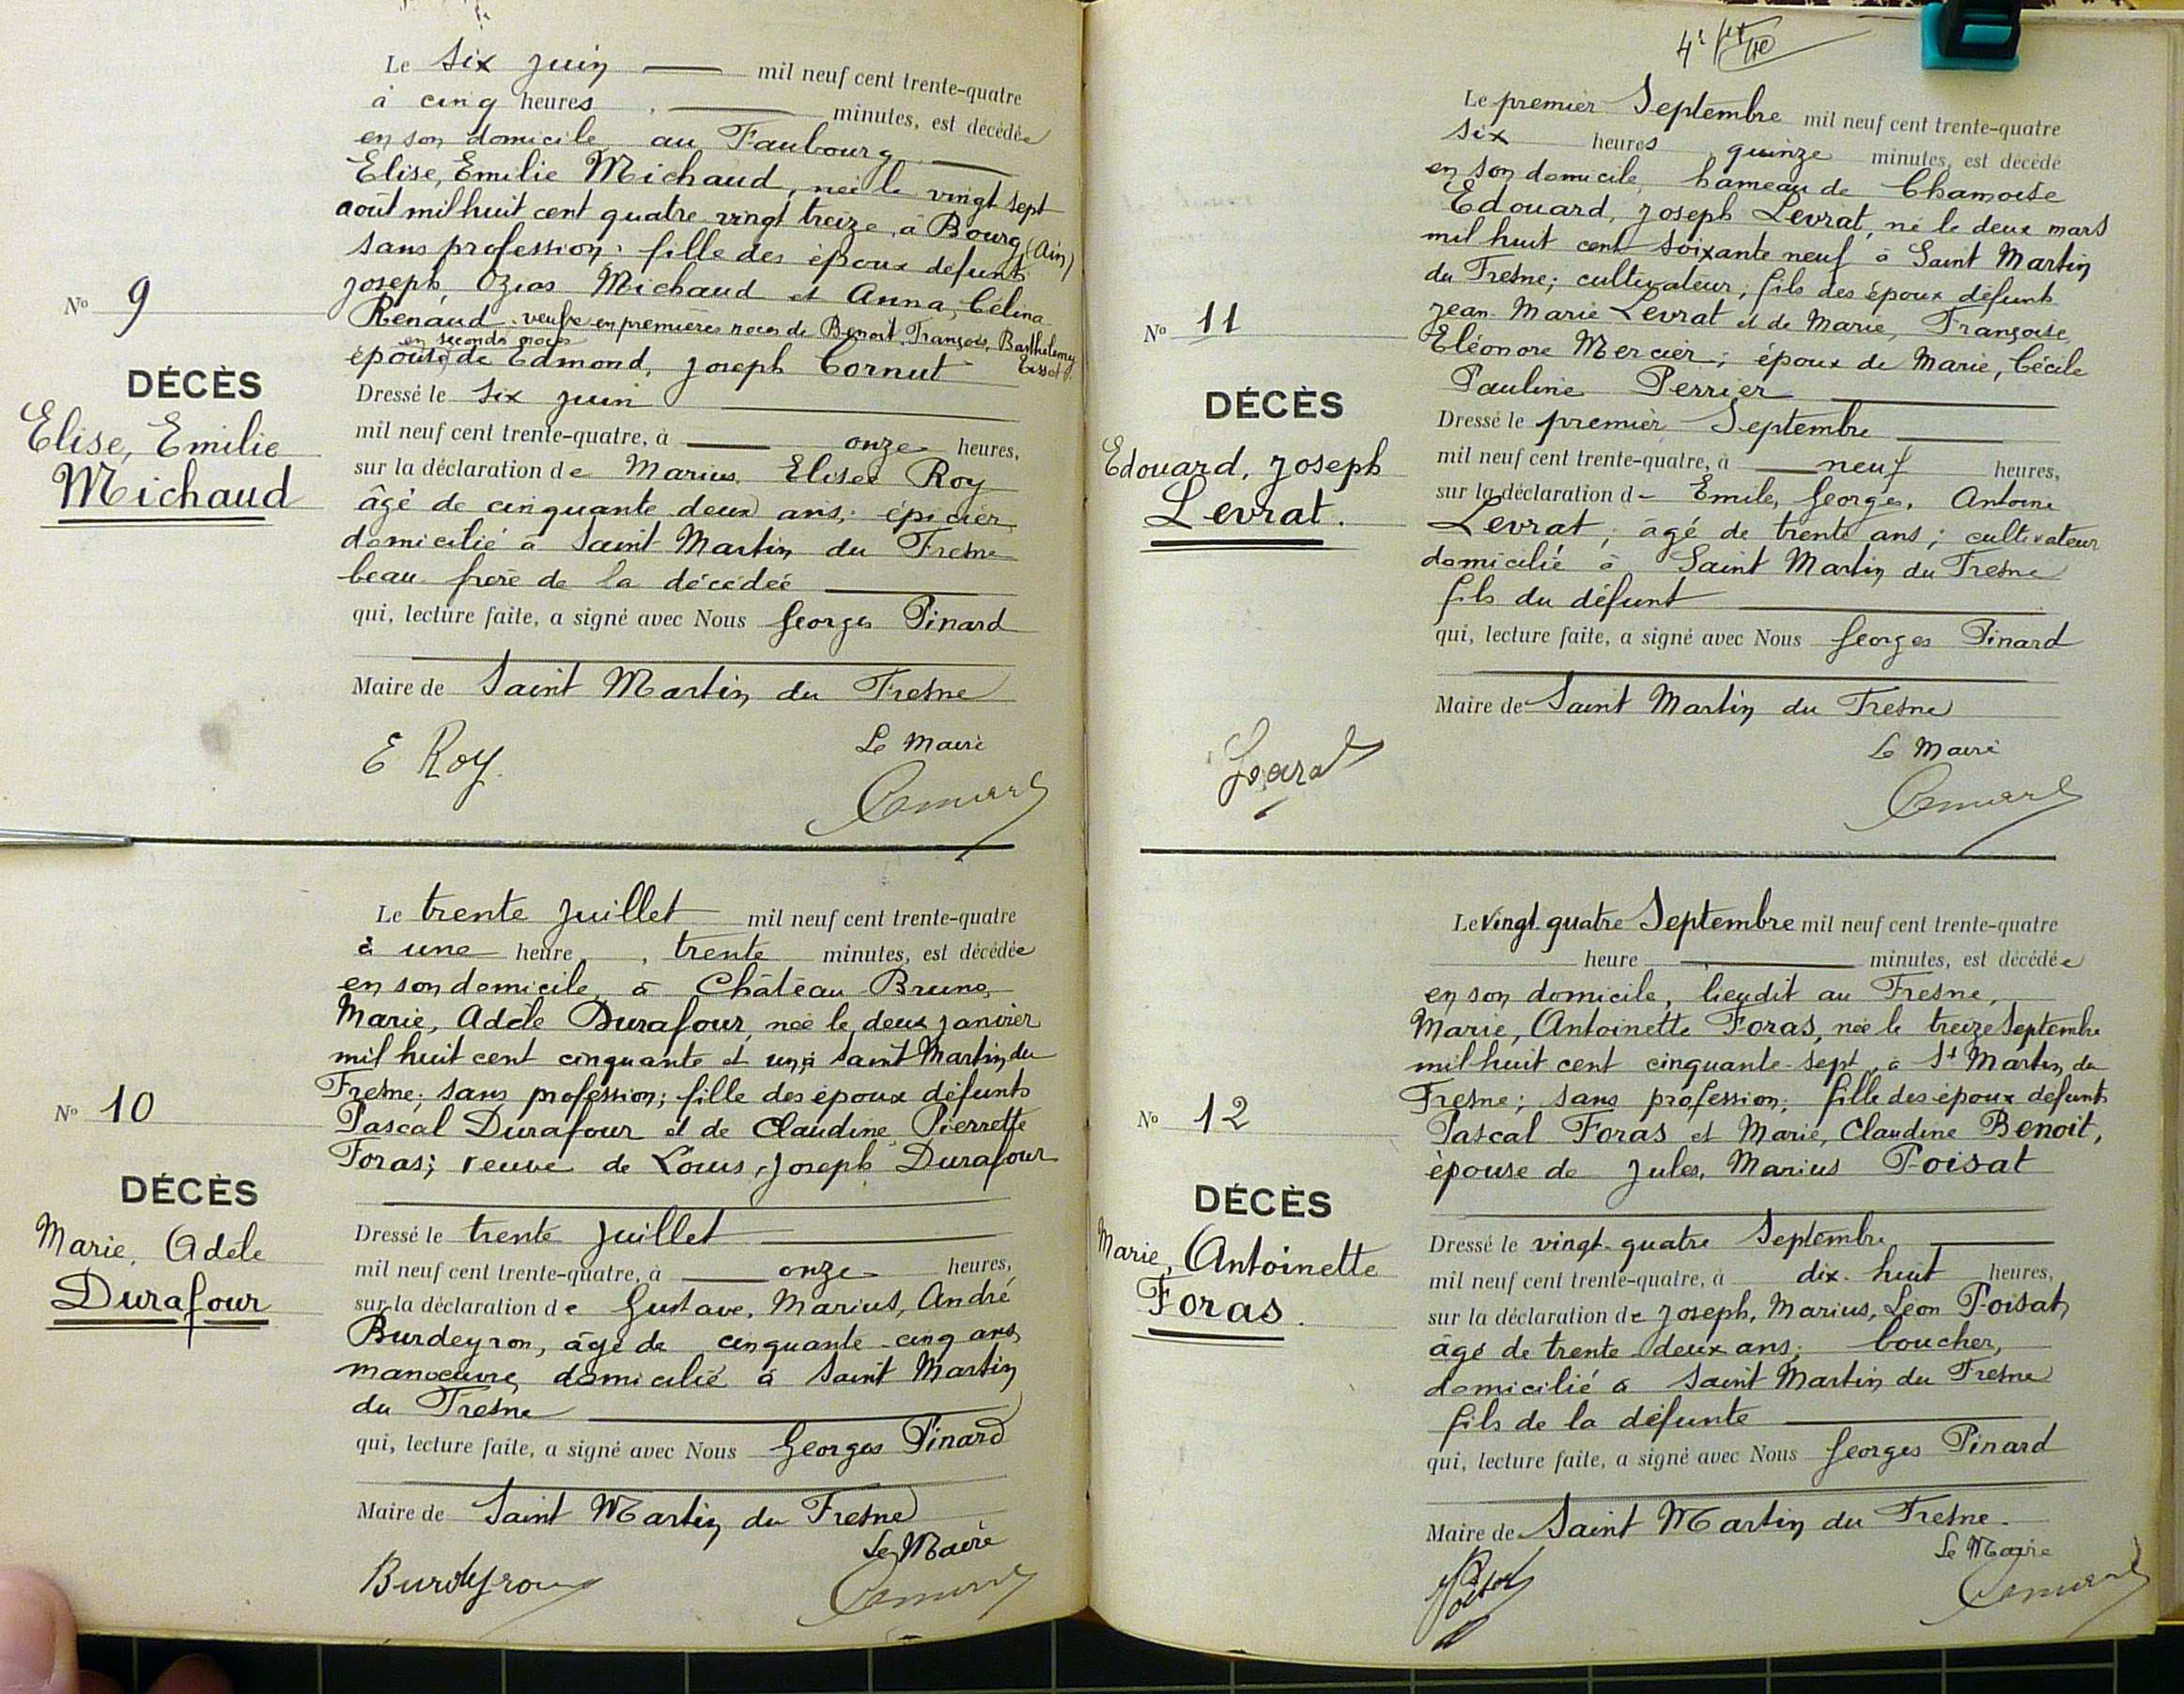 Le six juin mil neuf cent trente-quatre
à cinq heures, minutes, est décédée
en son domicile au Faubourg
Elise, Emilie Michaud, née le vingt sept
août mil huit cent quatre vingt treize, à Bourg (Ain)
sans profession; fille des époux défunts
Joseph, Ozias Michaud et Anna, Célina
Renaud. veuve en premières noces de Benoit, François, Barthelemy Tissot
en seconde noces
épouse de Edmond, Joseph Cornut
N° 9
DÉCÈS
Elise, Emilie
Michaud
Dressé le six juin
mil neuf cent trente-quatre, à onze heures,
sur la déclaration de Marius, Elisée Roy
âgé de cinquante deux ans; épicier
domicilié à Saint Martin du Fresne
beau frère de la décédée
qui, lecture faite, a signé avec Nous Georges Pinard
Maire de Saint Martin du Fresne
E Roy.
Le Maire
Le trente Juillet mil neuf cent trente-quatre
à une heure, trente minutes, est décédée
en son domicile, à Château-Bruno,
Marie, Adèle Durafour, née le deux janvier
mil huit cent cinquante et un, à Saint Martin du
Fresne; sans profession; fille des époux défunts
Pascal Durafour et de Claudine, Pierrette
Foras; veuve de Louis, Joseph Durafour
N° 10
DÉCÈS
Marie, Adèle
Durafour
Dressé le trente Juillet
mil neuf cent trente-quatre, à onze heures,
sur la déclaration de Gustave, Marius, André
Burdeyron, âgé de cinquante-cinq ans,
manoeuvre, domicilié à Saint Martin
du Fresne
qui, lecture faite, a signé avec Nous Georges Pinard
Maire de Saint Martin du Fresne
Le Maire
Burdeyron
Le premier Septembre mil neuf cent trente-quatre
six heures quinze minutes, est décédé
en son domicile, hameau de Chamoise
Edouard, Joseph Levrat, né le deux mars
mil huit cent soixante neuf à Saint Martin
du Fresne; cultivateur; fils des époux défunts
Jean-Marie Levrat et de Marie, Françoise,
Eléonore Mercier; époux de Marie, Cécile
Pauline Perrier
N° 11
DÉCÈS
Edouard, Joseph
Levrat.
Dressé le premier Septembre
mil neuf cent trente-quatre, à neuf heures,
sur la déclaration d- Emile, Georges, Antoine
Levrat; âgé de trente ans; cultivateur
domicilié à Saint Martin du Fresne
fils du défunt
qui, lecture faite, a signé avec Nous Georges Pinard
Maire de Saint Martin du Fresne
Le Maire
Levrat
Le vingt-quatre Septembre mil neuf cent trente-quatre
heure, minutes, est décédée
en son domicile, lieudit au Fresne,
Marie, Antoinette Foras, née le treize Septembre
mil huit cent cinquante-sept, à St Martin du
Fresne; sans profession; fille des époux défunts
Pascal Foras et Marie, Claudine Benoit,
épouse de Jules, Marius Poisat
N° 12
DÉCÈS
Marie, Antoinette
Foras.
Dressé le vingt-quatre Septembre
mil neuf cent trente-quatre, à dix-huit heures,
sur la déclaration de Joseph, Marius, Léon Poisat,
âgé de trente-deux ans; boucher,
domicilié à Saint Martin du Fresne
fils de la défunte
qui, lecture faite, a signé avec Nous Georges Pinard
Maire de Saint Martin du Fresne.
Le Maire
Poisat